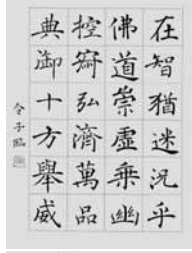 在智猶迷況乎
佛道崇虛乘幽
控寂弘濟萬品
典御十方舉威
令子臨